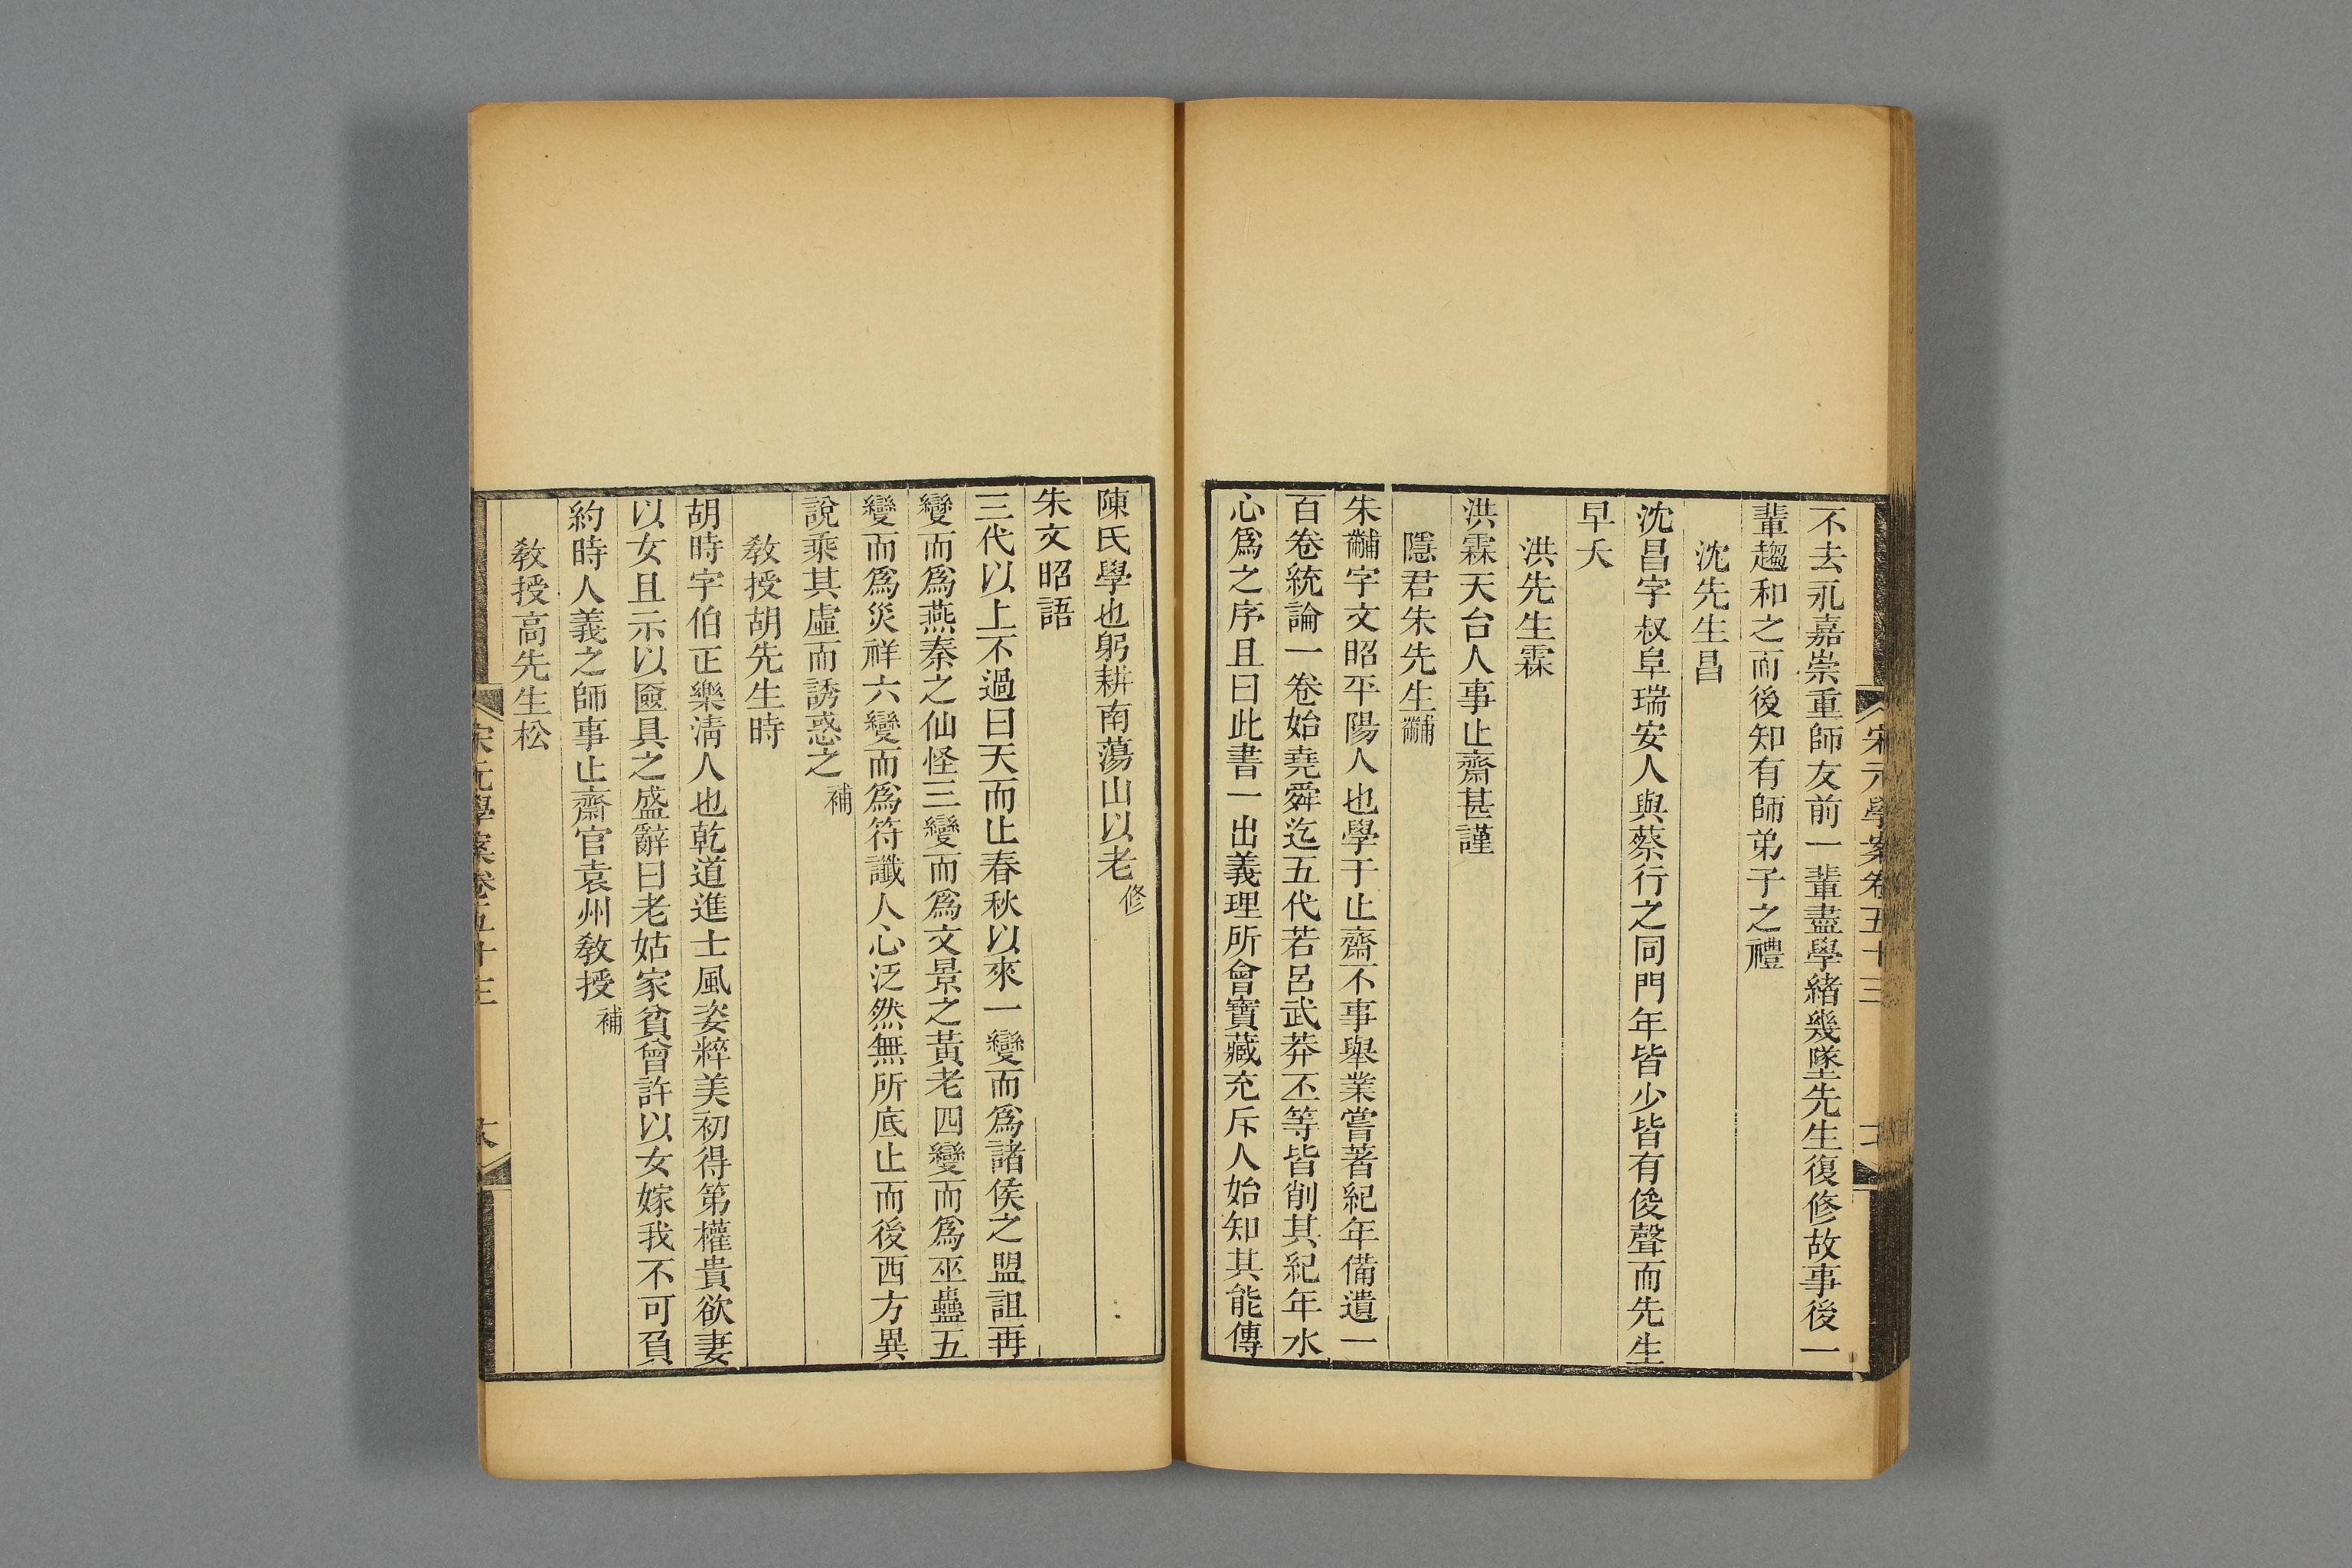 宋元學案卷五十三
不去永嘉崇重師友前一輩盡學緒幾墜先生復修故事後一
輩趨和之而後知有師弟子之禮
沈先生昌
沈昌字叔阜瑞安人與蔡行之同門年皆少皆有俊聲而先生
早夭
洪先生霖
洪霖天台人事止齋甚謹
隱君朱先生黼
朱黼字文昭平陽人也學于止齋不事舉業嘗著紀年備遺一
百卷統論一卷始堯舜迄五代若呂武莽丕等皆削其紀年水
心爲之序且曰此書一出義理所會寶藏充斥人始知其能傳
陳氏學也躬耕南蕩山以老修
朱文昭語
三代以上不過曰天而止春秋以來一變而爲諸侯之盟詛再
變而爲燕秦之仙怪三變而爲文景之黃老四變而爲巫蠱五
變而爲災祥六變而爲符讖人心泛然無所底止而後西方異
說乘其虛而誘惑之補
敎授胡先生時
胡時字伯正樂淸人也乾道進士風姿粹美初得第權貴欲妻
以女且示以匳具之盛辭曰老姑家貧曾許以女嫁我不可負
約時人義之師事止齋官袁州敎授補
敎授高先生松
宋元學案卷五十三